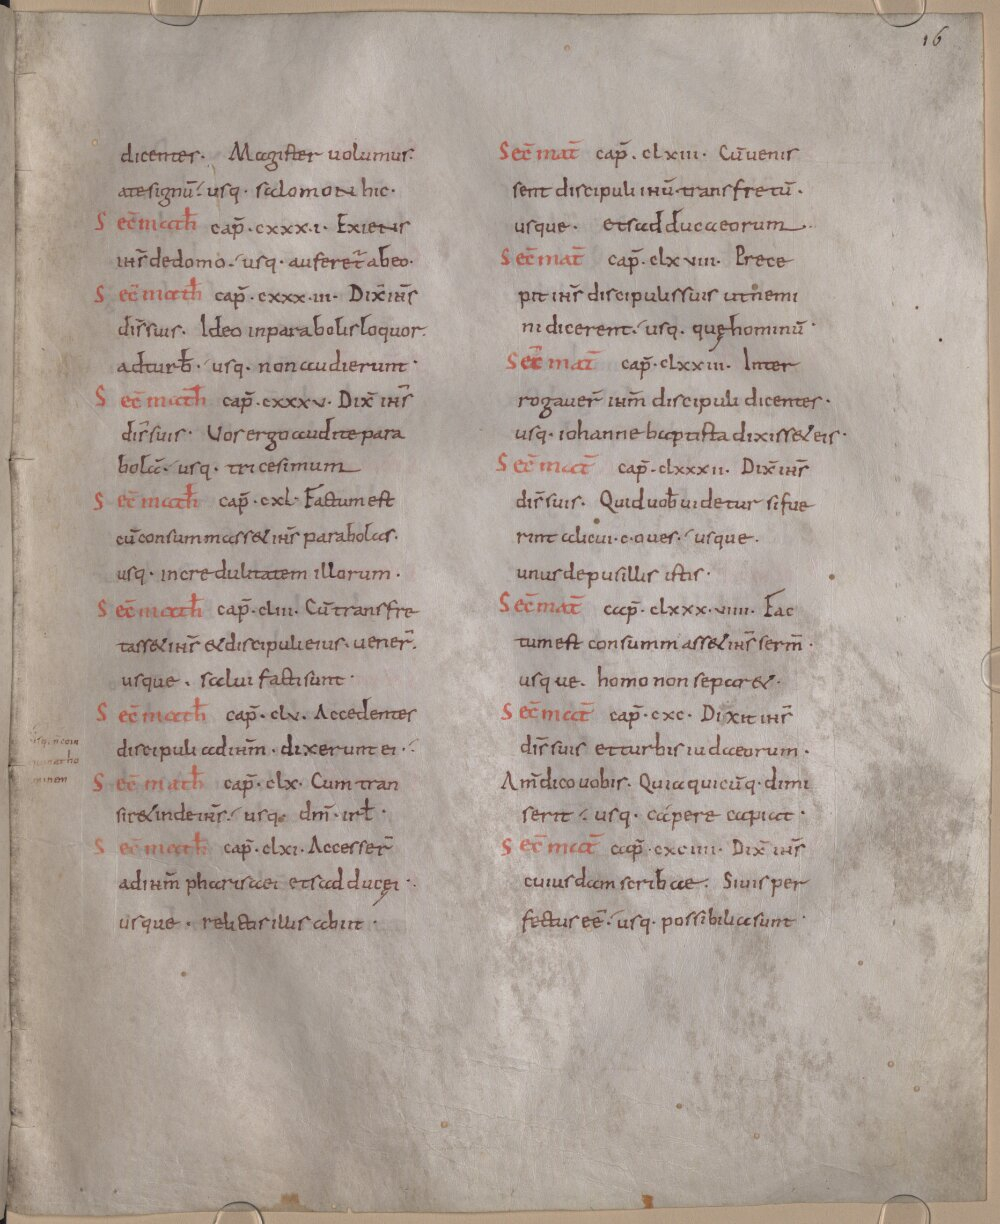 16
dicentes. Magister uolumus
ate signū. usq. salomon hic.
Sec̄ math̄ cap̄. cxxx.i. Exiens
ihs̄ de domo. usq. auferet̄ ab eo.
Sec̄ math̄ cap̄. cxxx.iii. Dix̄ ihs̄
dis̄ suis. Ideo in parabolis loquor
ad turb̄. usq. non audierunt.
Sec̄ math̄ cap̄. cxxxv. Dix̄ ihs̄
dis̄ suis. Uos ergo audite para
bolā. usq. tricesimum
Sec̄ math̄ cap̄. cxl. Factum est
cū consummass& ihs̄ parabolas.
usq. incredulitatem illorum.
Sec̄ math̄ cap̄. cliii. Cū transfre
tass& ihs̄ & discipuli eius. uener̄.
usque. salui facti sunt.
Sec̄ math̄ cap̄. clv. Accedentes
discipuli ad ihm̄. dixerunt ei.
Sec̄ math̄ cap̄. clx. Cum tran
sir& inde ihs̄. usq. dm̄. isrl̄.
Sec̄ math̄ cap̄. clxi. Accesser̄
ad ihm̄ pharisaei et sadducęi.
usque. relictis illis abiit.
minem
Sec̄ mat̄ cap̄. clxiii. Cū uenis
sent discipuli ihū. trans fretū.
usque. et sadducaeorum.
Sec̄ mat̄ cap̄. clxviii. Prece
pit ihs̄ discipulis suis ut nemi
ni dicerent. usq. quę hominū.
Sec̄ mat̄ cap̄. clxxiii. Inter
rogauer̄ ihm̄ discipuli dicentes.
usq. iohanne baptista dixiss& eis.
Sec̄ mat̄ cap̄. clxxxii. Dix̄ ihs̄
dis̄ suis. Quid uob̄ uidetur si fue
rint alicui. c. oues. usque.
unus de pusillis istis.
Sec̄ mat̄ cap̄. clxxx.viiii. Fac
tum est consummass& ihs̄ serm̄.
usque. homo non separ&.
Sec̄ mat̄ cap̄. cxc. Dixit ihs̄
dis̄ suis et turbis iudaeorum.
Am̄ dico uobis. Quia quicūq. dimi
serit. usq. capere capiat.
Sec̄ mat̄ cap̄. cxciiii. Dix̄ ihs̄
cuiusdam scribae. Si uis per
fectus eē. usq. possibilia sunt.